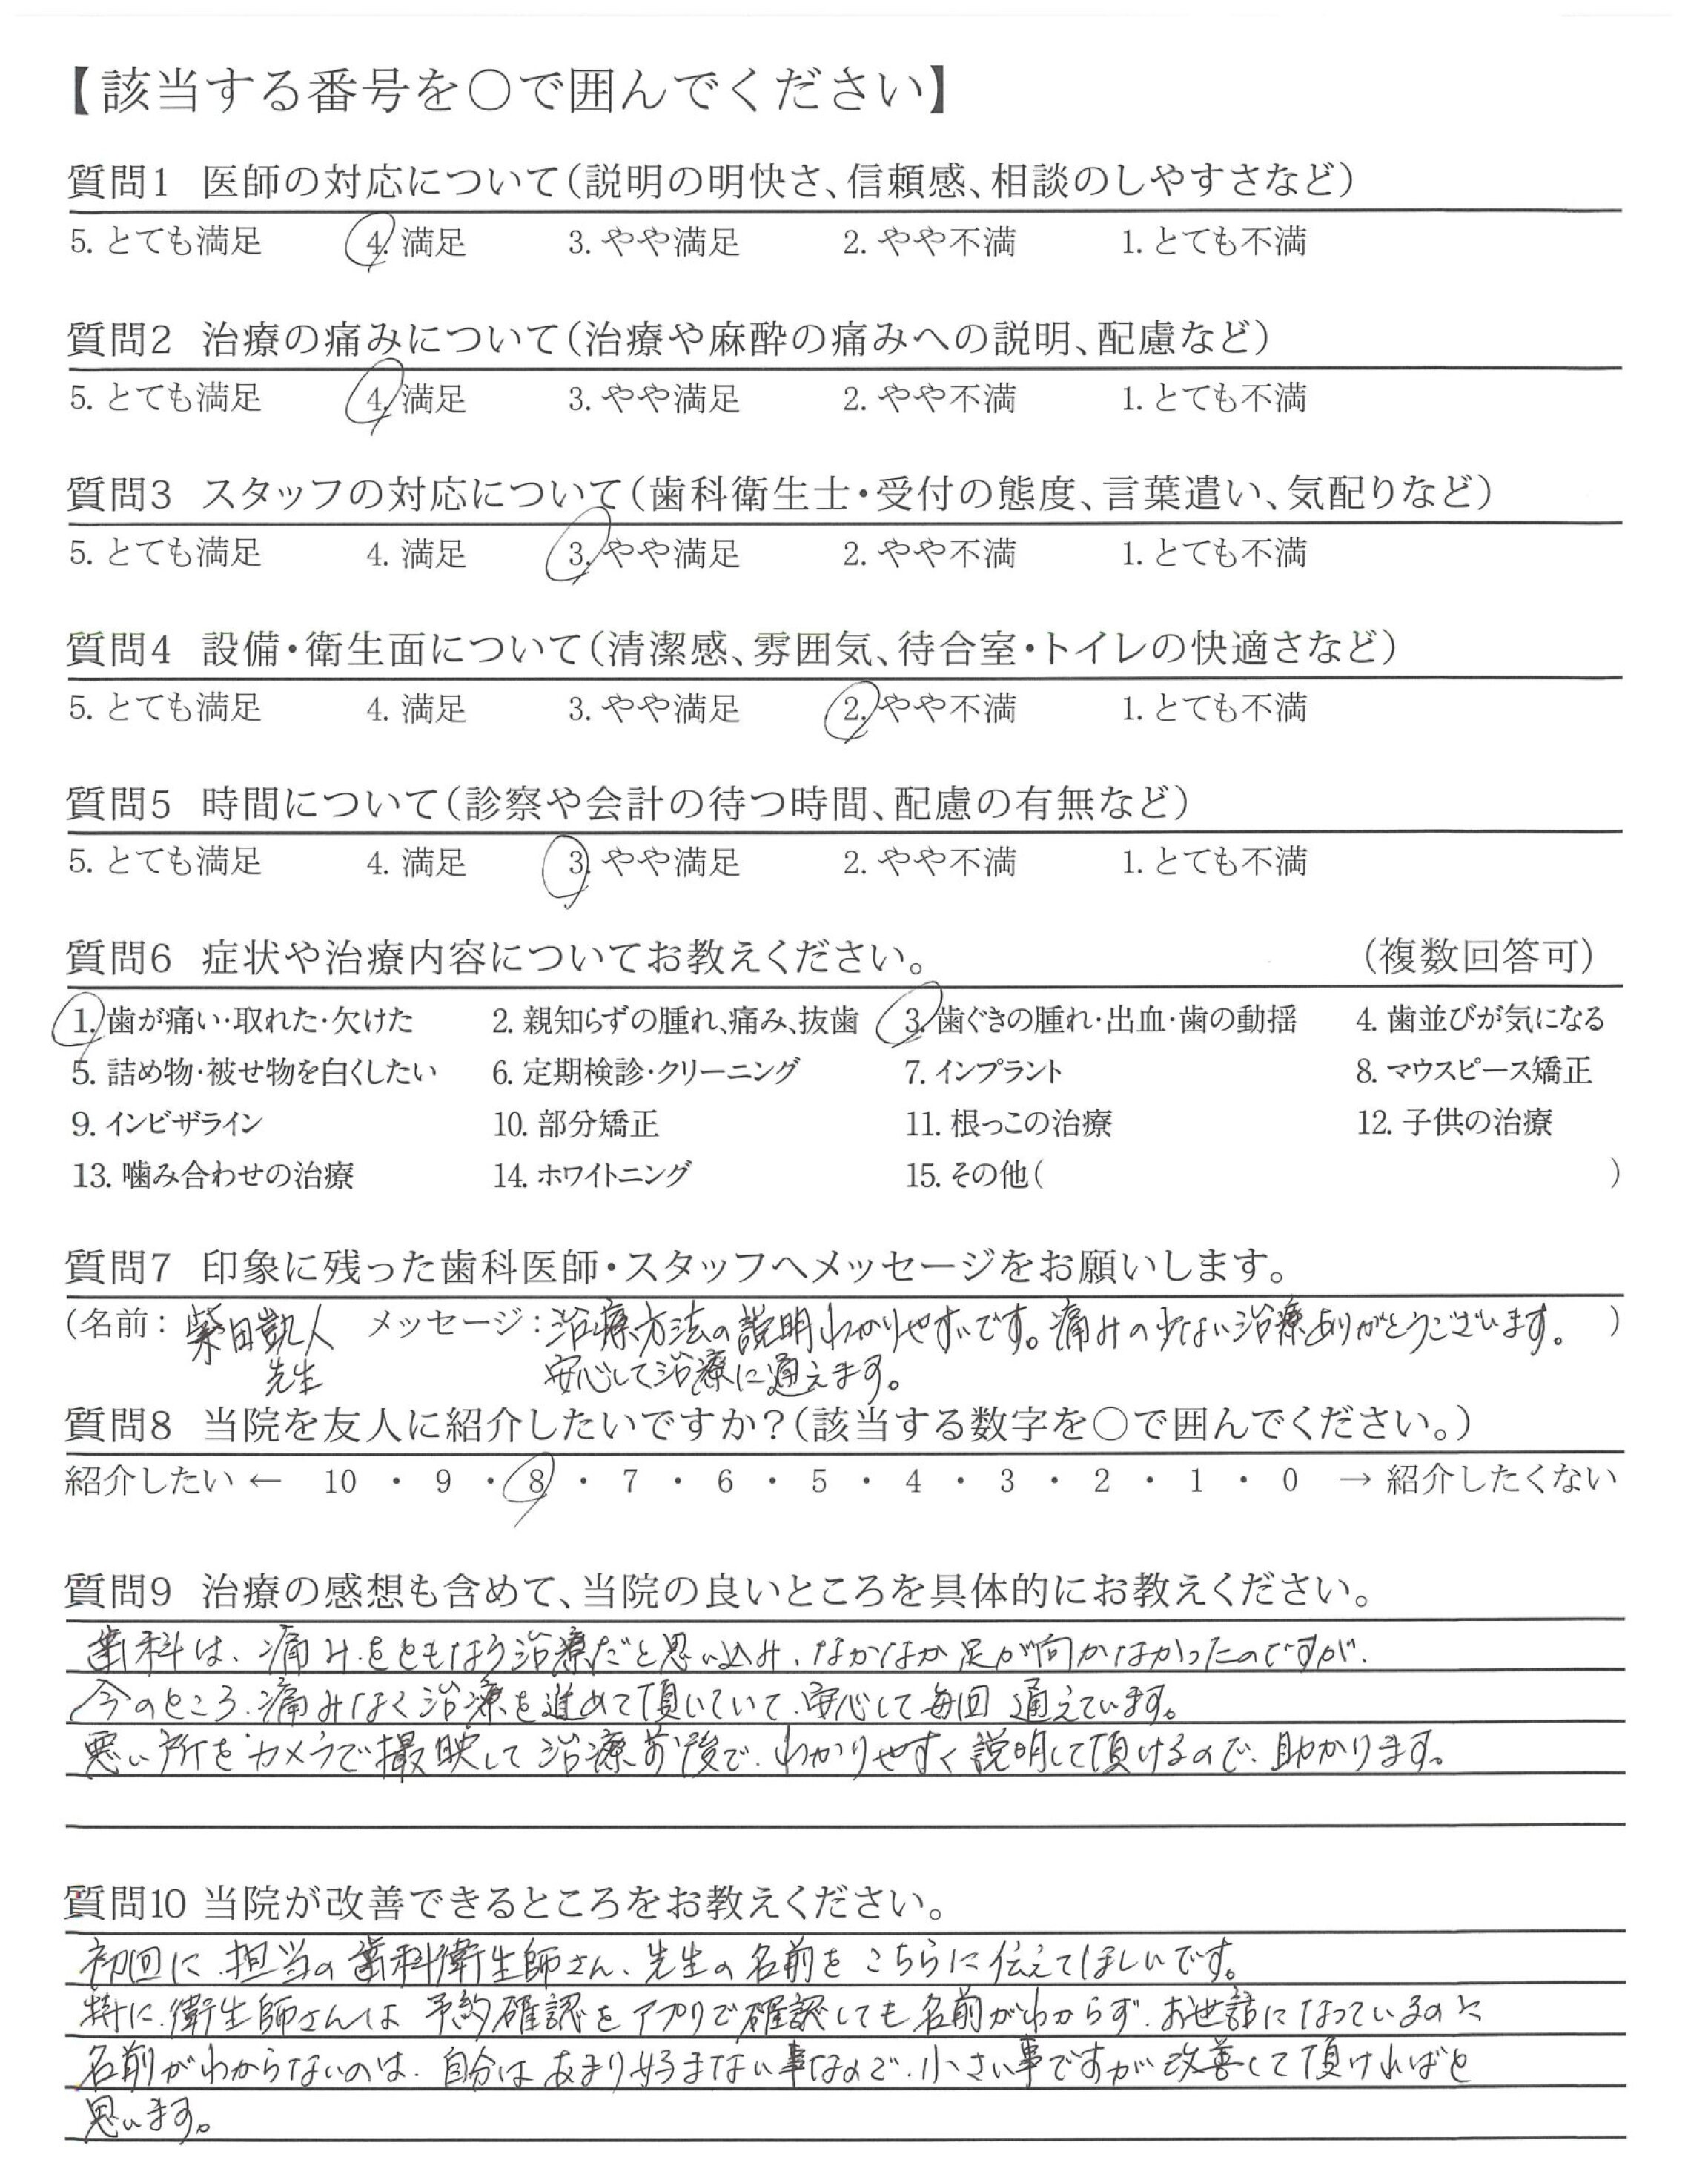 【該当する番号を〇で囲んでください】
質問1 医師の対応について（説明の明快さ、信頼感、相談のしやすさなど）
5. とても満足 4. 満足 3. やや満足 2. やや不満 1. とても不満
質問2 治療の痛みについて（治療や麻酔の痛みへの説明、配慮など）
5. とても満足 4. 満足 3. やや満足 2. やや不満 1. とても不満
質問3 スタッフの対応について（歯科衛生士・受付の態度、言葉遣い、気配りなど）
5. とても満足 4. 満足 3. やや満足 2. やや不満 1. とても不満
質問4 設備・衛生面について（清潔感、雰囲気、待合室・トイレの快適さなど）
5. とても満足 4. 満足 3. やや満足 2. やや不満 1. とても不満
質問5 時間について（診察や会計の待つ時間、配慮の有無など）
5. とても満足 4. 満足 3. やや満足 2. やや不満 1. とても不満
質問6 症状や治療内容についてお教えください。 （複数回答可）
1. 歯が痛い・取れた・欠けた 2. 親知らずの腫れ、痛み、抜歯 3. 歯ぐきの腫れ・出血・歯の動揺 4. 歯並びが気になる
5. 詰め物・被せ物を白くしたい 6. 定期検診・クリーニング 7. インプラント 8. マウスピース矯正
9. インビザライン 10. 部分矯正 11. 根っこの治療 12. 子供の治療
13. 噛み合わせの治療 14. ホワイトニング 15. その他（ ）
質問7 印象に残った歯科医師・スタッフへメッセージをお願いします。
（名前： 柴田凱人 メッセージ：治療方法の説明わかりやすいです。痛みの少ない治療ありがとうございます。 ）
先生 安心して治療に通えます。
質問8 当院を友人に紹介したいですか？（該当する数字を〇で囲んでください。）
紹介したい ← 10 ・ 9 ・ 8 ・ 7 ・ 6 ・ 5 ・ 4 ・ 3 ・ 2 ・ 1 ・ 0 → 紹介したくない
質問9 治療の感想も含めて、当院の良いところを具体的にお教えください。
歯科は、痛みをともなう治療だと思い込み、なかなか足が向かなかったのですが、
今のところ、痛みなく治療を進めて頂いていて、安心して毎回 通えています。
悪い所をカメラで撮映して治療前後で、わかりやすく説明して頂けるので、助かります。
質問10 当院が改善できるところをお教えください。
初回に、担当の歯科衛生師さん、先生の名前をこちらに伝えてほしいです。
特に、衛生師さんは 予約確認をアプリで確認しても名前がわからず、お世話になっているのに
名前がわからないのは、自分はあまり好まない事なので、小さい事ですが改善して頂ければと
思います。